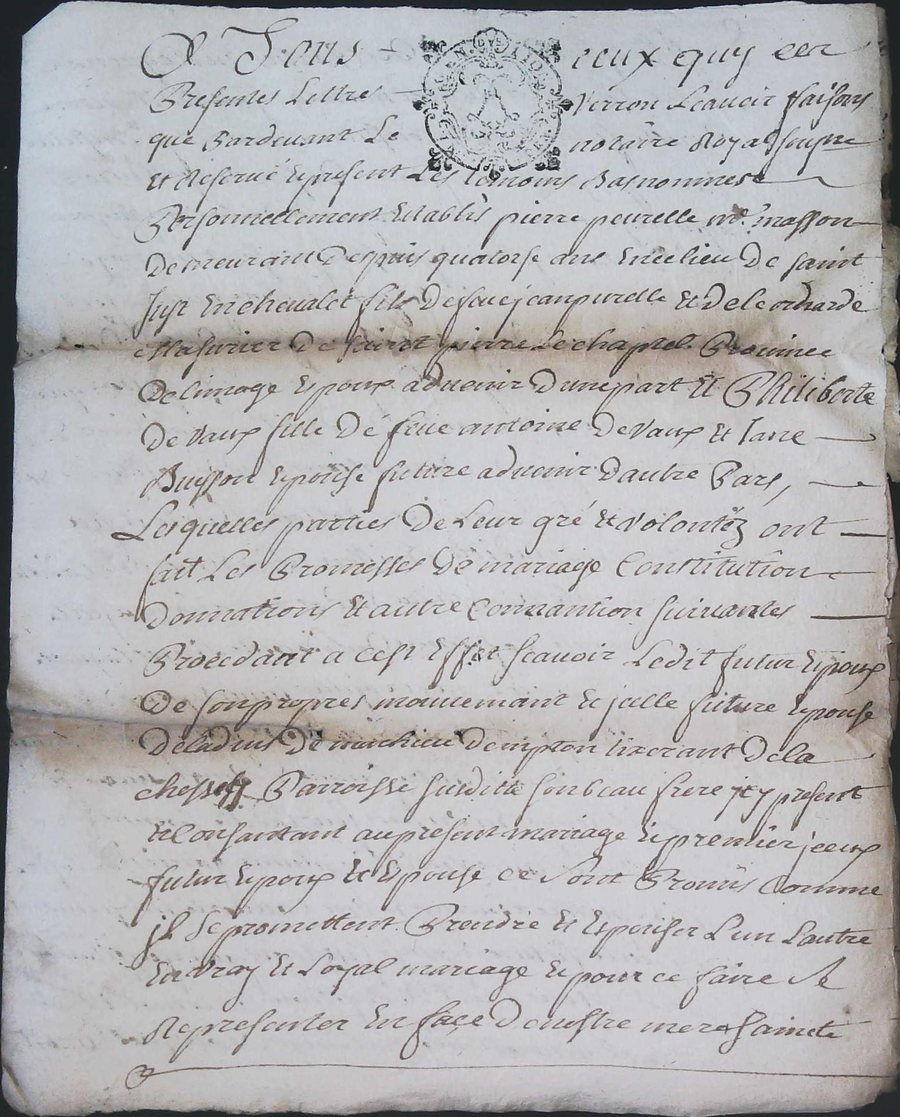 A Tous ceux quy ces
Presentes Lettres Verron Scavoir faisons
que Pardevant Le notaire Royal soupne
Et Reservé Epresent Les temoins Basnommes
Personnellement Etablis pierre peurelle me. masson
Demeurant Depuis quatorse ans En ce lieu De saint
Just En chevalet fils De feu jean purelle Et De leonarde
De saint pierre Le chaptel Province
De limoge Epoux advenir Dune part Et Philiberte
De Vaux fille Dé feue antoine De Vaux Et Jane
Buisson Epouse future advenir Dautre Pars,
Lesquelles parties De Leur gré Et Volontéz ont
fait Les Promesses De mariage Constitution
Donnations Et autre Convantion suivantes
Procedant a cest Effet scavoir Ledit futur Epoux
De son propres mouvement E jcelle future Epouse
De ladvis De mathieu Dempton De la
Parroisse suiditte son beau frere jcy present
Et Consantant au present mariage E premier jceux
futur Epoux Et Epouse ce sont Promis Comme
jl se promettent Prendre Et Epouser L'un Lautre
En Vray Et Loyal mariage E pour ce faire se
Representer En façe De nostre mere sainte